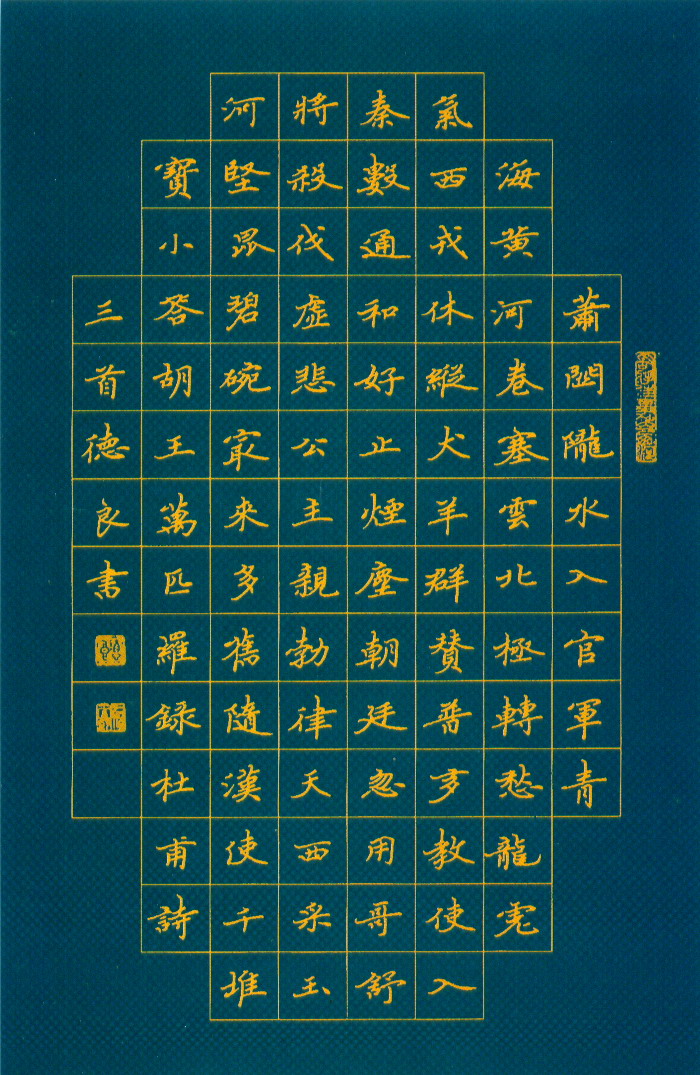 蕭關隴水入官軍青
海黃河卷塞雲北極轉愁龍虎
氣西戎休縱犬羊群贊普多教使入
秦數通和好止煙塵朝廷忽用哥舒
將殺伐虛悲公主親勃律天西采玉
河堅昆碧碗冣來多舊隨漢使千堆
寶小答胡王萬匹羅録杜甫詩
三首德良書